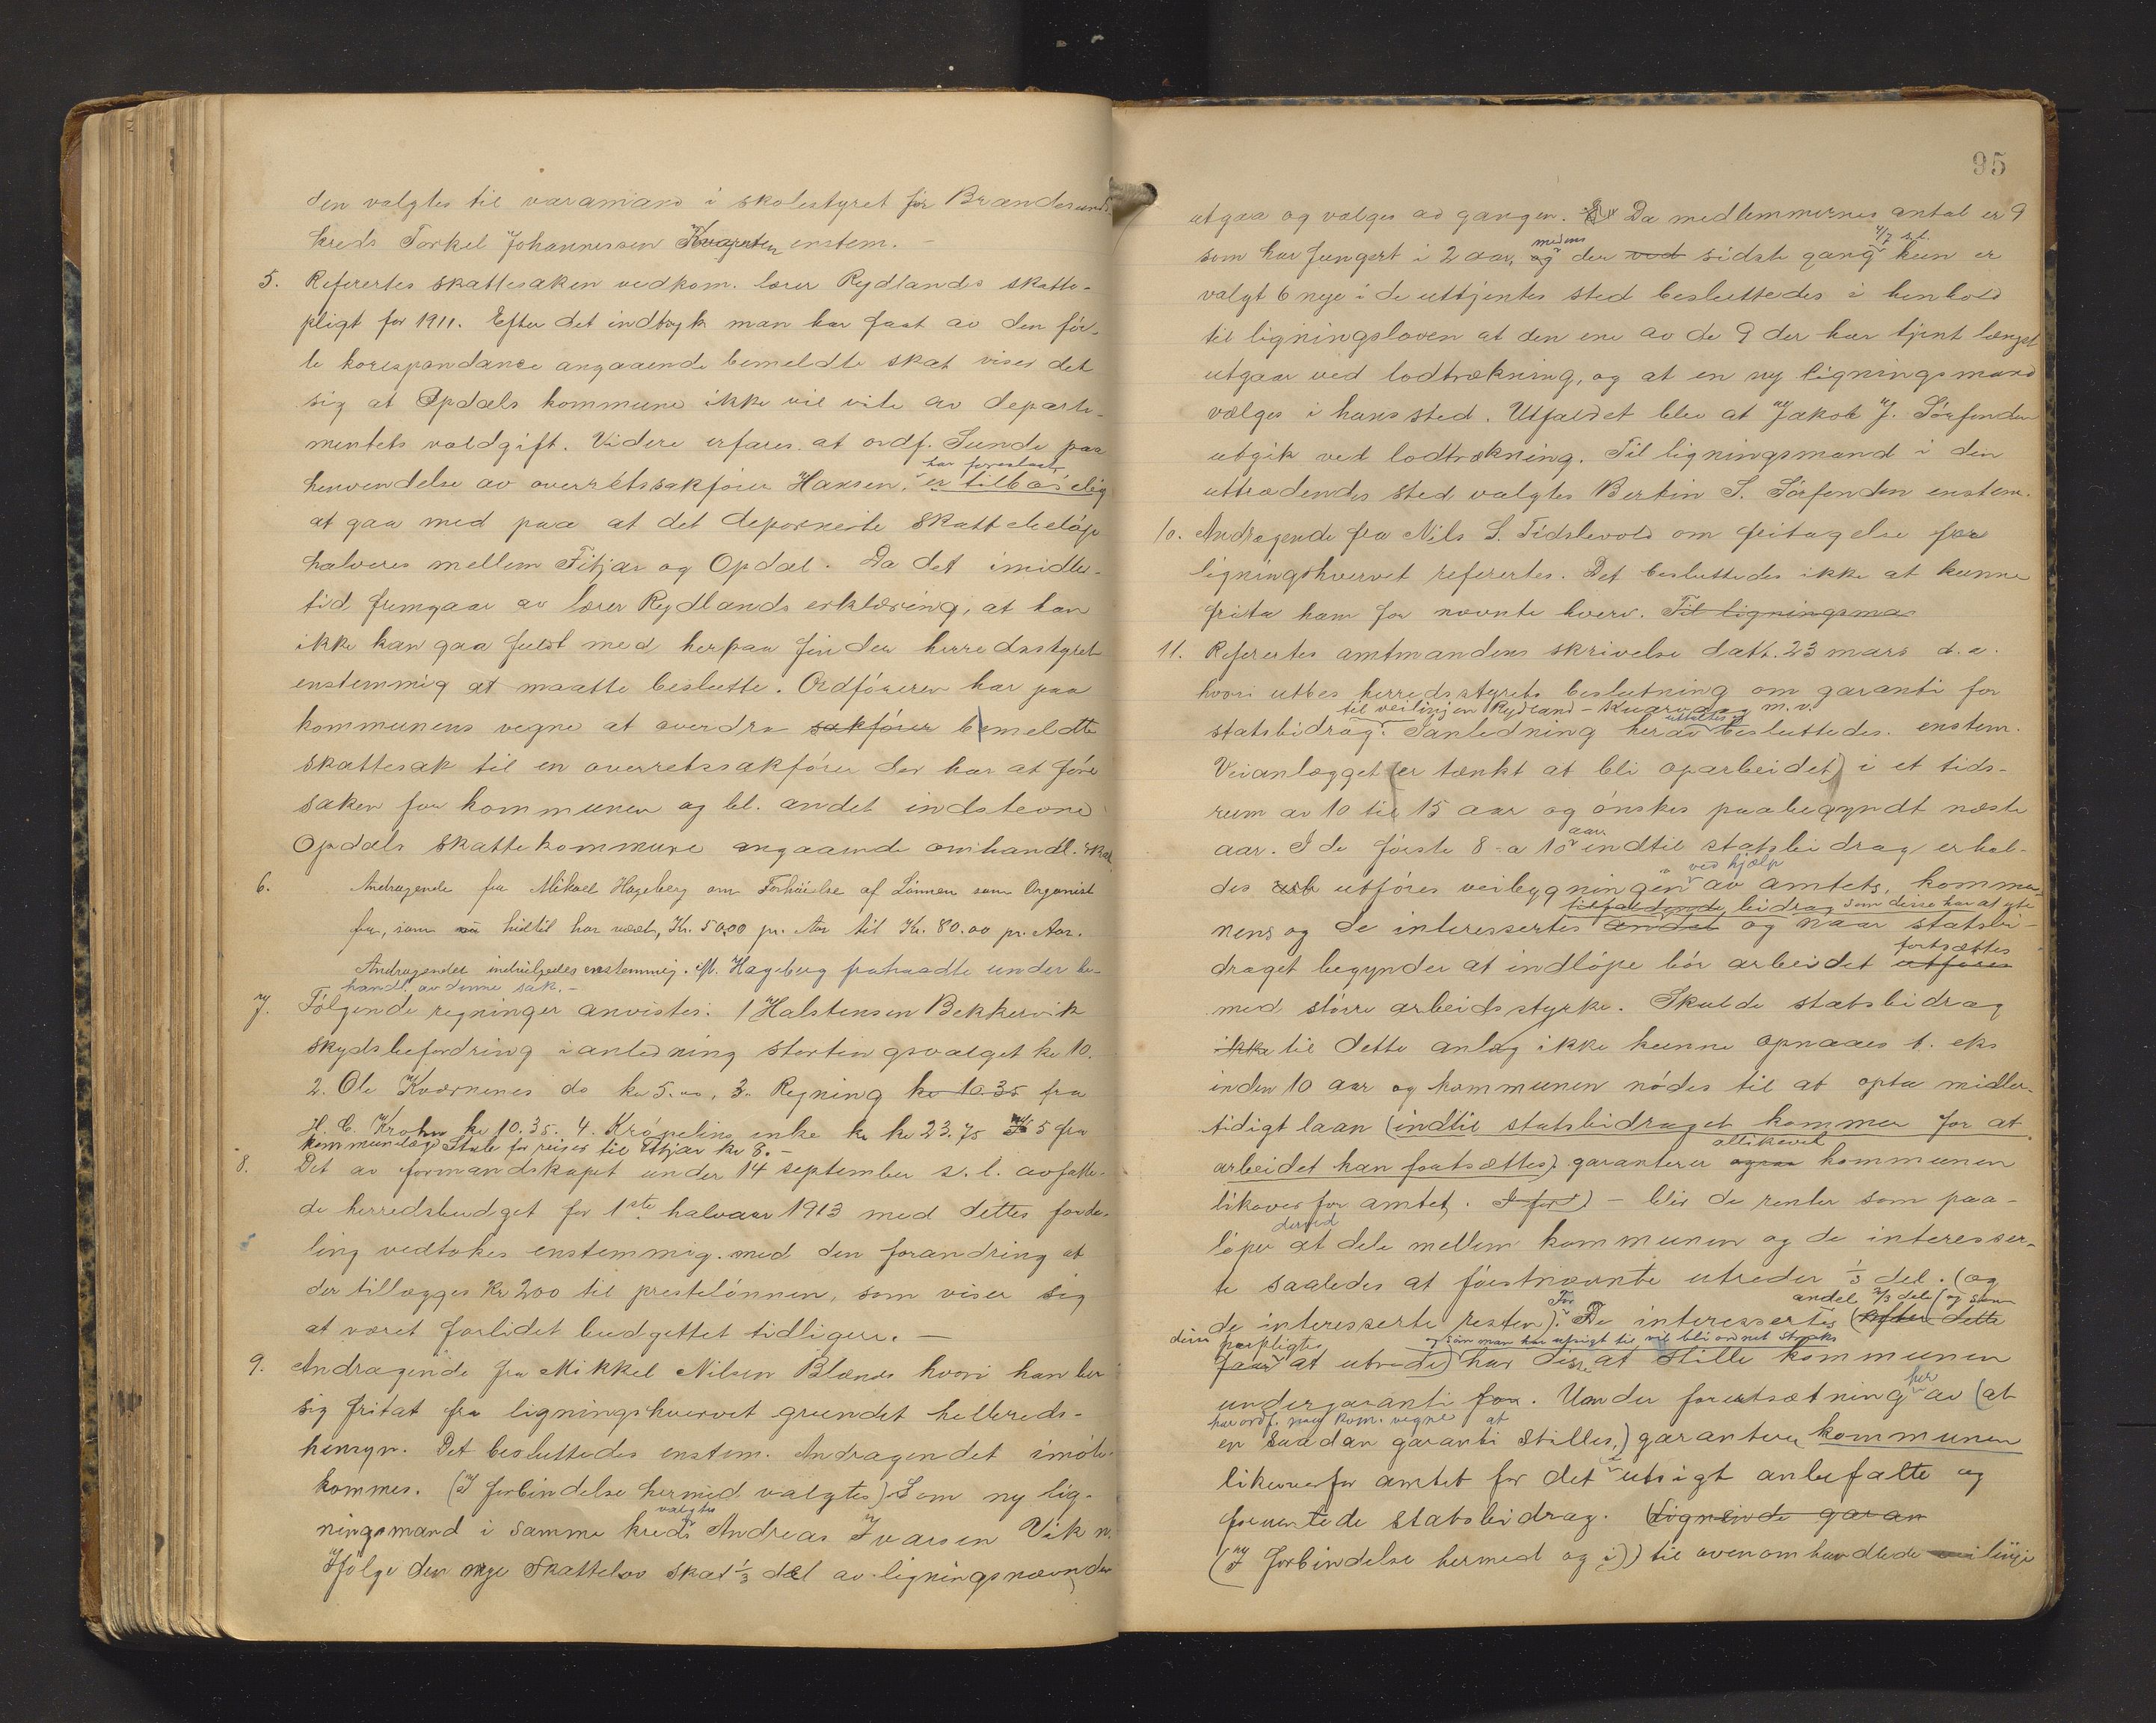 den valgtes til varamand i skolestyret for Brandesunds
kreds Torkel Johannessen enstem. -
5. Refertes skattesaken vedkom. lærer Rydlands skatte-
pligt for 1911. Efter det indtryk man har faat av den før-
te korespondance angaaende bemeldte skat viser det
sig at Opdals kommune ikke vil vite av departe-
mentets voldgift. Videre erfares at ordf. Sunde paa
har foreslaat
henvendelse av overretssakfører Hansen, er tilbøielig
at gaa med paa at det deponerte skattebeløp
halveres mellem Fitjar og Opdal. Da det imidler-
tid fremgaar av lærer Rydlands erklæring, at han
ikke kan gaa fuldt med herpaa finder herredsstyret
enstemmig at maatte beslutte. Ordføreren har paa
kommunens vegne at overdra sakfører bemeldte
skattesak til en overretssakfører der har at føre
saken for kommunen og bl. andet indstevne
Opdals skattekommune angaaende omhandl. skat
6. Andragende fra Mikael Hageberg om Forhøielse af Lønnen som Organist
fra, som nu hidtil har været, Kr. 50.00 pr. Aar til Kr. 80.00 pr. Aar.
Andragendet indvilgedes enstemmig. Hageberg fratraadte under be-
handl. av denne sak. -
7. Følgende regninger anvistes: 1 Halstensen Bekkervik
skydsbefordring i anledning stortingsvalget kr 10.
2. Ole Kværnenes do kr 5.00, 3. Regning kr 10.35 fra
H. C. Krohn kr 10.35. 4. Krøpelins enke kr kr 23.75 5 fra
kommunelæge Stub for reiser til Fitjar kr 8. -
8. Det av formandskapet under 14 september s. l. avfatte-
de herredsbudget for 1ste halvaar 1913 med dettes forde-
ling vedtokes enstemmig med den forandring at
der tillægges kr 200 til prestelønnen, som viser sig
at været forlidet budgettet tidligere. -
9. Andragende fra Mikkel Nilsen Blænes hvori han ber
sig fritat fra ligningshvervet grundet helbreds-
hensyn. Det besluttedes enstem. Andragendet imøte-
kommes. (I forbindelse hermed valgtes) Som ny lig-
valgtes
ningsmand i samme kreds Andreas Ivarsen Vik n.
Ifølge den nye Skattelov skal 1/3 del av ligningsnævnden
95
utgaa og vælges ad gangen. Da medlemmernes antal er 9
medens 4/7 s.l.
som har fungert i 2 aar, og der ved sidste gang kun er
valgt 6 nye i de uttjentes sted besluttedes i henhold
til ligningsloven at den ene av de 9 der har tjent længst
utgaar ved lodtrækning, og at en ny ligningsmand
vælges i hans sted. Utfaldet blev at Jakob J. Sørfonden
utgik ved lodtrækning. Til ligningsmand i den
uttrædendes sted valgtes Bertin S. Sørfonden enstem.
10. Andragende fra Nils S. Tidslevold om fritagelse fra
ligningshvervet refertes. Det besluttedes ikke at kunne
frita ham for nævnte hverv. Til ligningsma
11. Refertes amtmandens skrivelse datt. 23 mars d.a.
hvori utbes herredsstyrets beslutning om garanti for
til veilinjen Rydland - Kvarvaag m.v. uttaltes og
statsbidrag. I anledning herav besluttedes enstem.
Veianlægget (er tænkt at bli oparbeidet) i et tids-
rum av 10 til 15 aar og ønskes paabegyndt næste
aar
aar. I de første 8 a 10 indtil statsbidrag erhol-
ved hjælp
des utføres veibygningen av amtets, kommu-
tilfaldende bidrag som disse har at yte
nens og de interessertes andel og naar statsbi-
fortsættes
draget begynder at indløpe bør arbeidet utføres
med større arbeidsstyrke. Skulde statsbidrag
ikke til dette anlæg ikke kunne opnaaes f. eks
inden 10 aar og kommunen nødes til at opta midler-
tidigt laan (indtil statsbidraget kommer for at
allikevel
arbeidet kan fortsættes) garanterer kommunen
likeoverfor amtet. I for) - blir de renter som paa-
derved
løper at dele mellem kommunen og de interesser-
te saaledes at førstnævnte utreder 1/3 del. (og
For andel 2/3 dele (og som
de interesserte resten). De interessertes (efter dette
disse forpligte og som man har utsigt til vil bli ordnet straks
faar at utrede) har disse at stille kommunen
her
undergaranti for. Under forutsætning av (at
har ordf. paa kom. vegne at
en saadan garanti stilles,) garanterer kommunen
likeoverfor amtet for det i utsigt anbefalte og
forventede statsbidrag. (Lignende garan
(I forbindelse hermed og i)) til ovenomhandlede veilinje